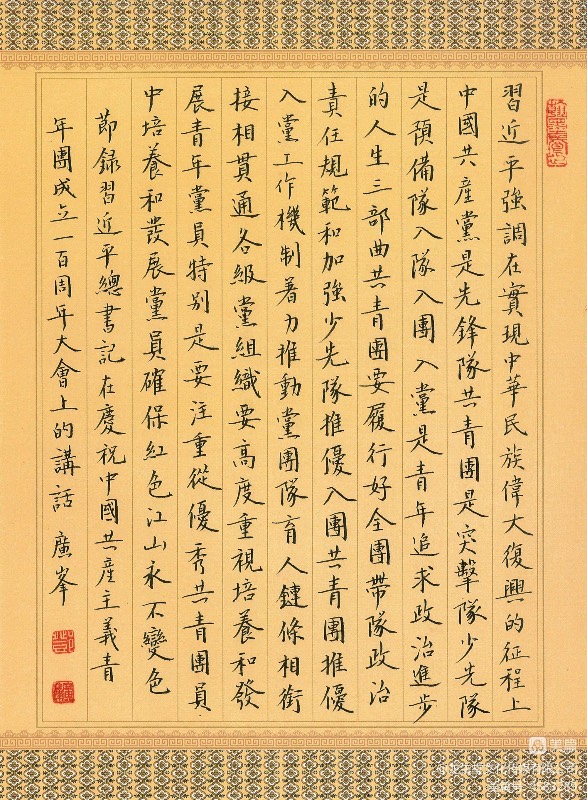 習近平強調在實現中華民族偉大復興的征程上
中國共產黨是先鋒隊共青團是突擊隊少先隊
是預備隊入隊入團入黨是青年追求政治進步
的人生三部曲共青團要履行好全團帶隊政治
責任規範和加強少先隊推優入團共青團推優
入黨工作機制著力推動黨團隊育人鏈條相銜
接相貫通各級黨組織要高度重視培養和發
展青年黨員特別是要注重從優秀共青團員
中培養和發展黨員確保紅色江山永不變色
節録習近平總書記在慶祝中國共產主義青
年團成立一百周年大會上的講話 廣峯